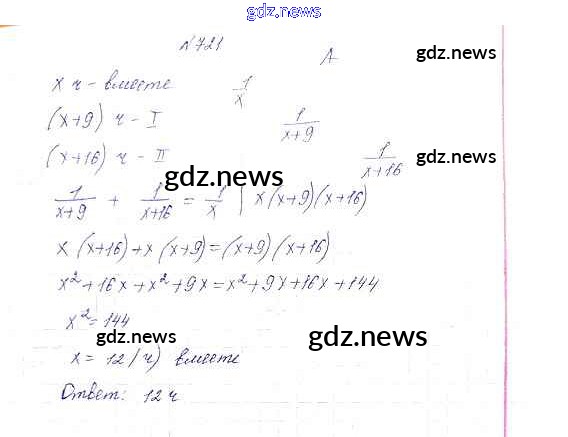 gdz.news
№721
A gdz.news
x ч - вместе 1/x
(x+9) ч - I 1/(x+9)
(x+16) ч - II 1/(x+16) gdz.news
gdz.news
1/(x+9) + 1/(x+16) = 1/x | x(x+9)(x+16)
x(x+16)+x(x+9)=(x+9)(x+16)
x²+16x+x²+9x=x²+9x+16x+144
x²=144
gdz.news gdz.news
x = 12 (ч) вместе
Ответ: 12 ч